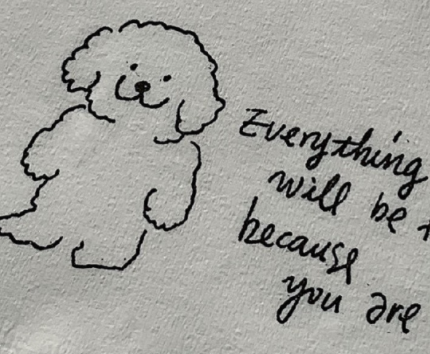 Everything
will be
because
you are